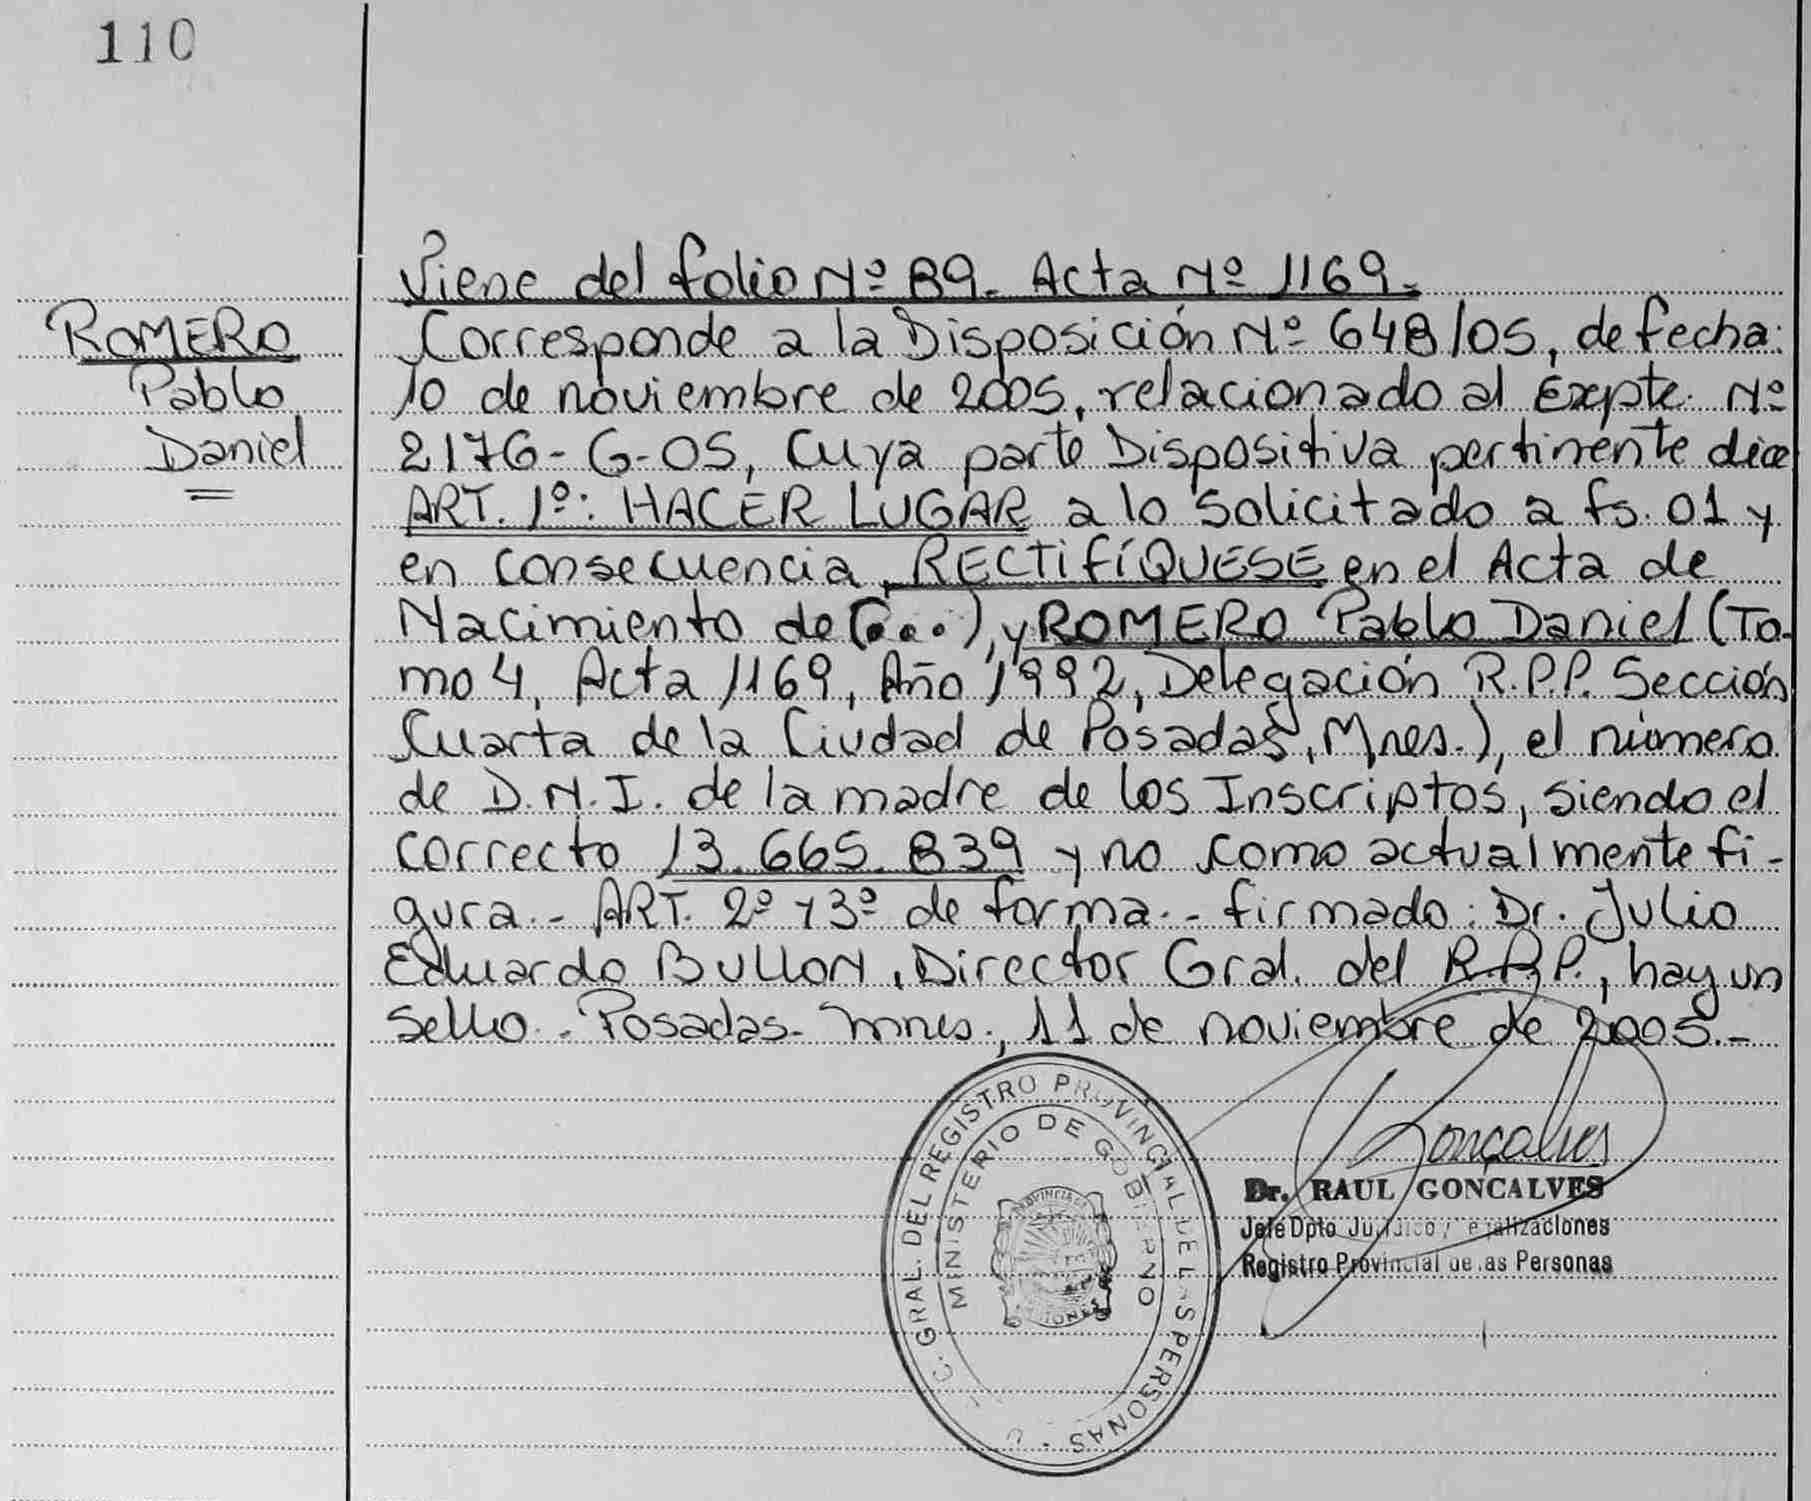 110
ROMERO
Pablo
Daniel
Viene del folio Nº 89. Acta Nº 1169.
Corresponde a la Disposición Nº 648/05, de fecha:
10 de noviembre de 2005, relacionado al Expte. Nº
2176-G-05, Cuya parte Dispositiva pertinente dice
ART. 1º: HACER LUGAR a lo solicitado a fs. 01 y
en consecuencia, RECTIFÍQUESE en el Acta de
Nacimiento de (...), y ROMERO Pablo Daniel (To-
mo 4, Acta 1169, Año 1992, Delegación R.P.P. Sección
Cuarta de la Ciudad de Posadas, Mnes.), el número
de D.N.I. de la madre de los Inscriptos, siendo el
correcto 13.665.839 y no como actualmente fi-
gura.- ART. 2º y 3º de forma.- firmado: Dr. Julio
Eduardo BULLON, Director Gral. del R.P.P., hay un
sello.- Posadas- Mnes., 11 de noviembre de 2005.-
C. GRAL. DEL REGISTRO PROVINCIAL DE LAS PERSONAS
MINISTERIO DE GOBIERNO
PROVINCIA
MISIONES
Goncalves
Dr. RAUL GONCALVES
Jefe Dpto Jurídico y Legalizaciones
Registro Provincial de las Personas